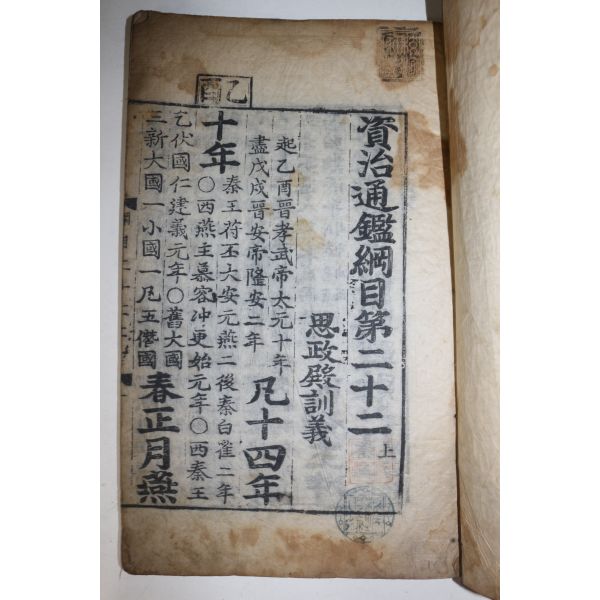 資治通鑑綱目第二十二上
思政殿訓義
起乙酉晉孝武帝太元十年
盡戊戌晉安帝隆安二年
凡十四年
乙酉
十年
秦王苻丕大安元燕二後秦白雀二年
○西燕主慕容沖更始元年○西秦王
乞伏國仁建義元年○舊大國
三新大國一小國一凡五僭國
春正月燕